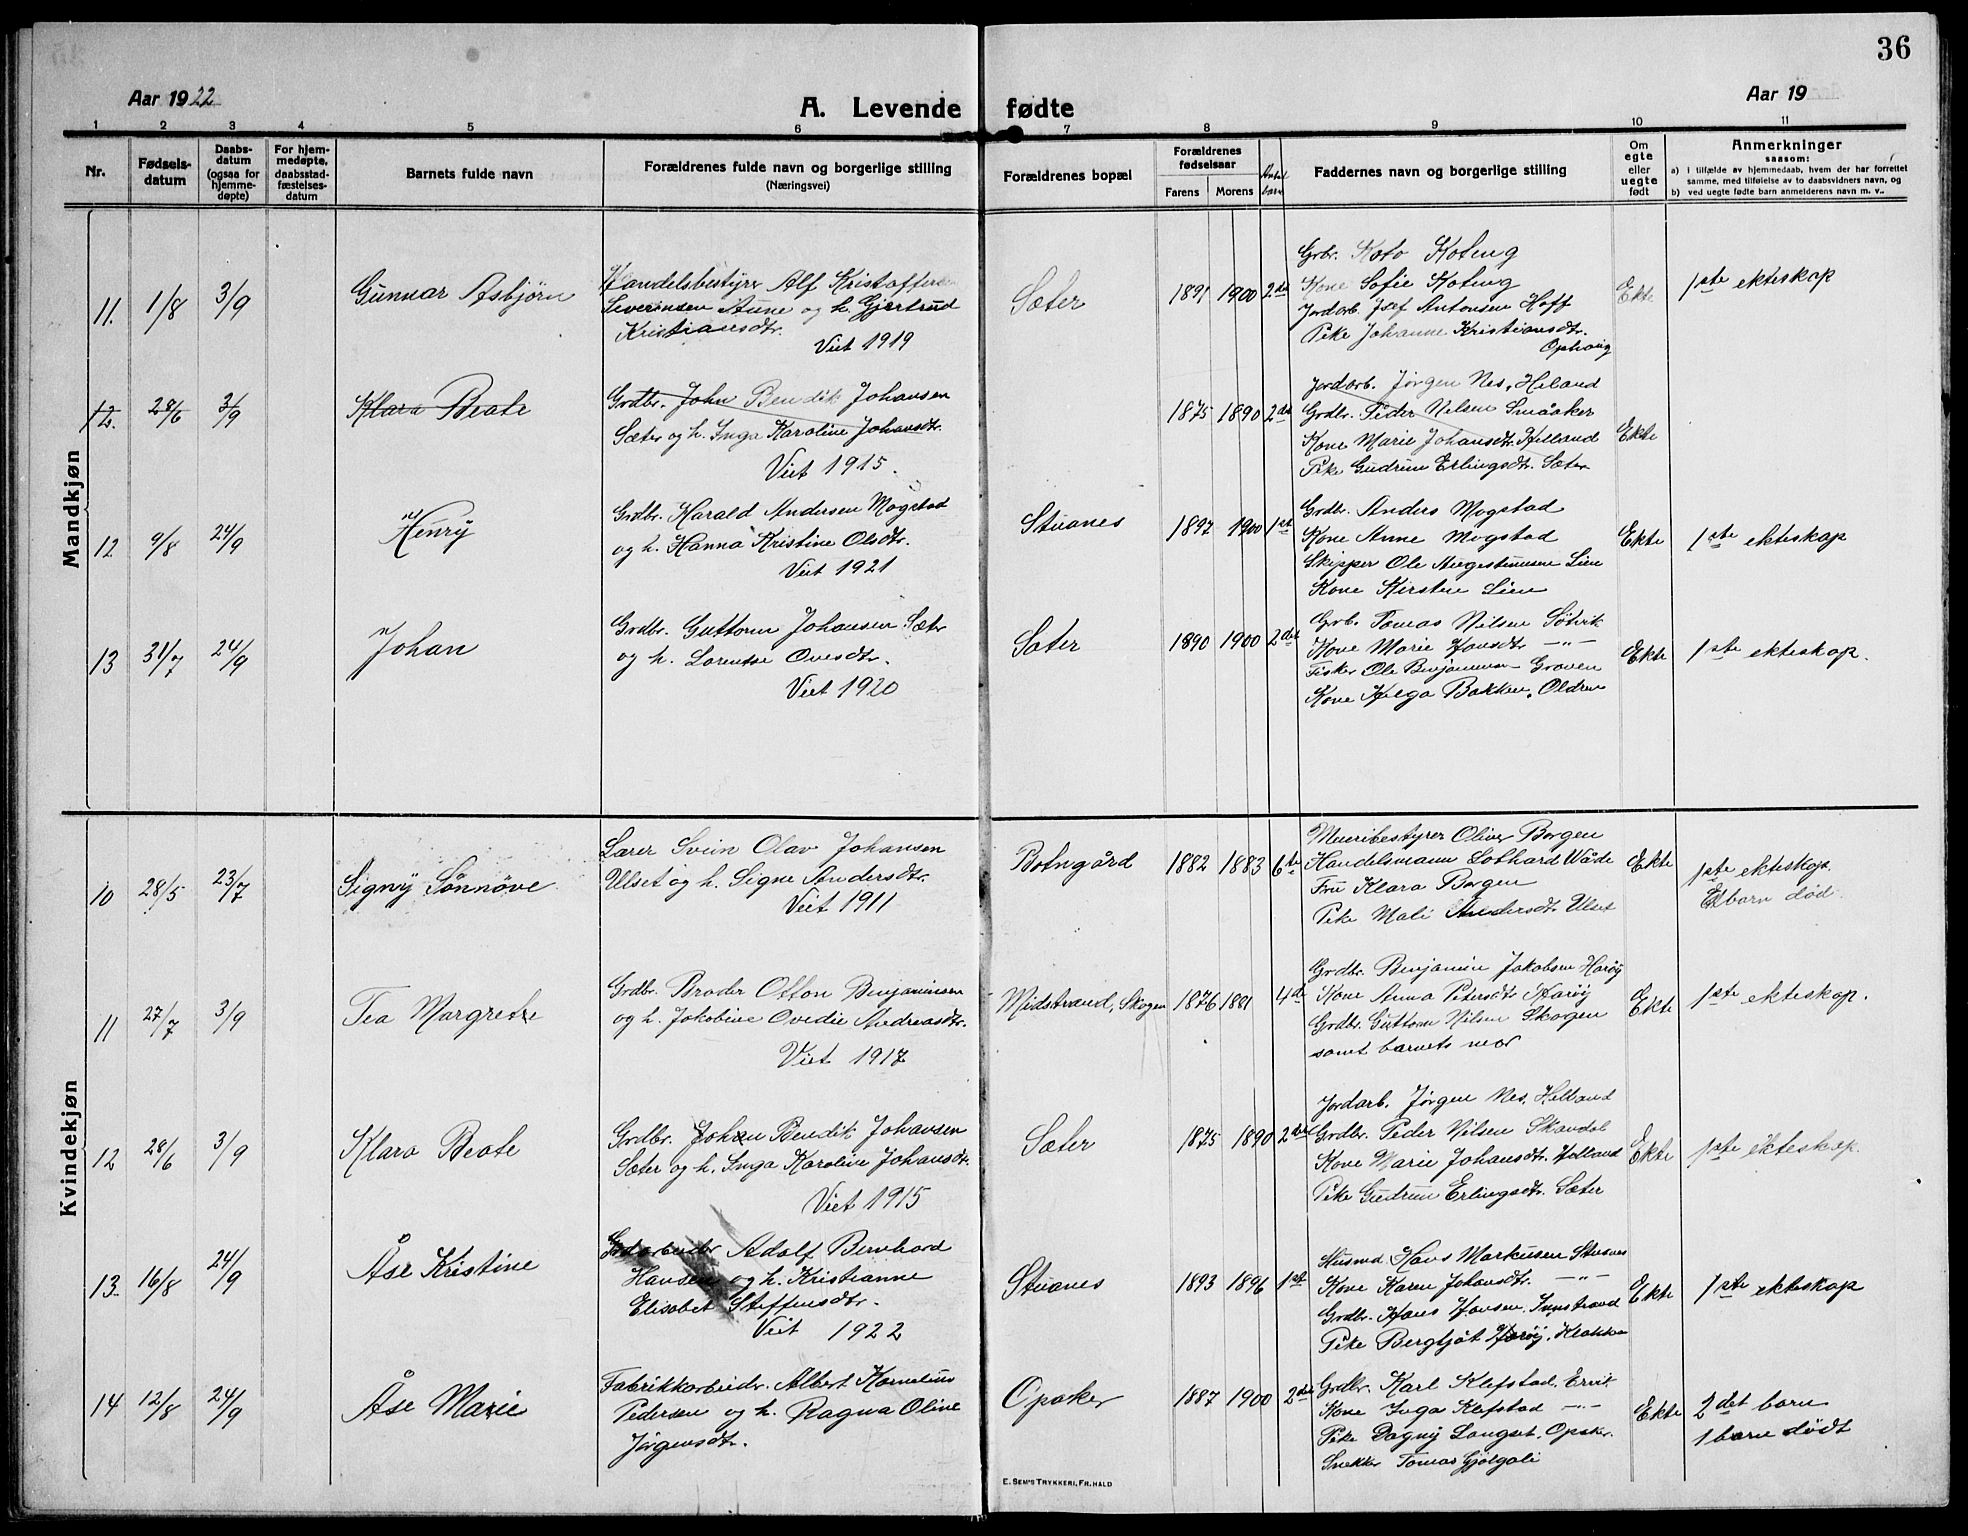 36
Aar 1922
A. Levende fødte
Aar 19
1 2 3 4 5 6 7 8 9 10 11
Nr.
Fødsels-
datum
Daabs-
datum
(ogsaa for
hjemme-
døpte)
For hjem-
medøpte,
daabsstad-
fæstelses-
datum
Barnets fulde navn
Forældrenes fulde navn og borgerlige stilling
(Næringsvei)
Forældrenes bopæl
Forældrenes
fødselsaar
Farens Morens
Antal
barn
Faddernes navn og borgerlige stilling
Om
egte
eller
uegte
født
Anmerkninger
saasom:
a) i tilfælde av hjemmedaab, hvem der har forrettet
samme, med tilføielse av to daabsvidners navn, og
b) ved uegte fødte barn anmelderens navn m. v..
Mandkjøn
11. 1/8 3/9 Gunnar Asbjørn
Handelsbestyrer Alf Kristoffer
Severinsen Aune og h. Gjertrud
Kristiansdtr.
Viet 1919
Sæter 1891 1900 2det
Grbr. Koto Koteng
Kone Sofie Koteng
Jordarb. Josef Antonsen Hoff
Pike Johanne Kristiansdtr.
Ophaug
Ekte 1ste ekteskap
12. 28/6 3/9 Klara Beate
Grdbr. John Bendik Johansen
Sæter og h. Inga Karoline Johansdtr.
Viet 1915.
1875 1890 2det
Jordarb. Jørgen Nes, Heland
Grdbr. Peder Nilsen Småaker
Kone Marie Johansdtr. Helland
Pike Gudrun Erlingsdtr. Sæter
Ekte
12 9/8 24/9 Henry
Grdbr. Harald Andersen Mogstad
og h. Hanna Kristine Olsdtr.
Viet 1921
Stuanes 1897 1900 1ste
Grdbr. Anders Mogstad
Kone Anne Mogstad
Skipper Ole Augestinusen Lien
Kone Kirsten Lien
Ekte 1ste ekteskap
13 31/7 24/9 Johan
Grdbr. Guttorm Johansen Sæter
og h. Lorentse Ovesdtr.
Viet 1920
Sæter 1890 1900 2det
Grb. Tomas Nilsen Søtvik
Kone Marie Hansdtr —"—
Fisker Ole Benjaminsen Graven
Kone Helga Bakken, Oldren
Ekte 1ste ekteskap.
Kvindekjøn
10 28/5 23/7 Signy Sønnøve
Lærer Svein Olav Johansen
Ulset og h. Signe Andersdtr.
Viet 1911
Botngård 1882 1883 6te
Meieribestyrer Oliver Borgen
Handelsmann Lothard Wåde
Fru Klara Borgen
Pike Mali Andersdtr Ulset
Ekte 1ste ekteskap.
Et barn død.
11 27/7 3/9 Tea Margrete
Grdbr. Broder Otton Benjaminsen
og h. Jakobine Ovedie Andreasdtr.
Viet 1917
Midstrand, Skogen 1876 1881 4de
Grdbr. Benjamin Jakobsen Harøy
Kone Anna Petersdt Harøy
Grdbr. Guttorm Nilsen Skogen
samt barnets mor
Ekte 1ste ekteskap.
12 28/6 3/9 Klara Beate
Grdbr. John Bendik Johansen
Sæter og h. Inga Karoline Johansdtr.
Viet 1915
Sæter 1875 1890 2det
Jordarb. Jørgen Nes, Helland
Grdbr. Peder Nilsen Skaudal
Kone Marie Johansdtr. Helland
Pike Gudrun Erlingsdtr. Sæter
Ekte 1ste ekteskap.
13. 16/8 24/9 Åse Kristine
Jordarbeider Adolf Bernhard
Hansen og h. Kristianne
Elisabet Steffensdtr.
Viet 1922
Stuanes 1893 1896 1ste
Husmd Hans Markusen Stuanes
Kone Karen Johansdtr. —"—
Grdbr. Hans Hansen, Innstrand
Pike Bergljot Harøy, Klakken
Ekte 1ste ekteskap
14 12/8 24/9 Åse Marie
Fabrikkarbeider. Albert Kornelius
Pedersen og h. Ragna Oline
Jørgensdtr.
Opaker 1887 1900 2det
Grdbr. Karl Klefstad, Ervik
Kone Inga Klefstad —"—
Pike Dagny Langset, Opaker.
Snekker Tomas Gjølgali
Ekte 2det barn
1 barn dødt
E. SEM'S TRYKKERI, FR.HALD